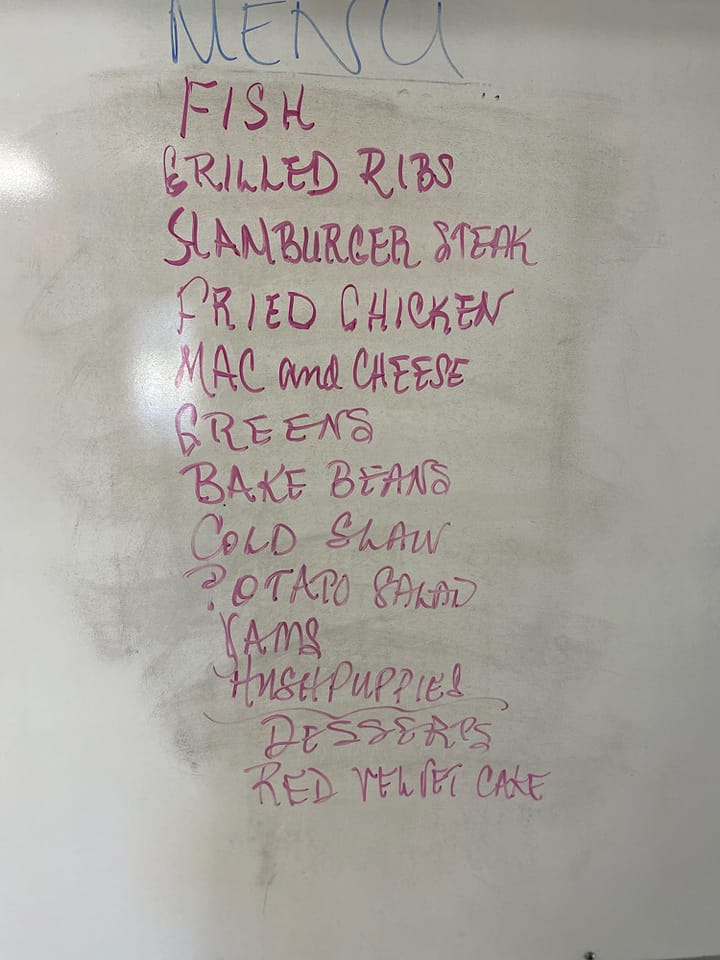 MENU
FISH
GRILLED RIBS
SLAMBURGER STEAK
FRIED CHICKEN
MAC and CHEESE
GREENS
BAKE BEANS
COLD SLAW
POTATO SALAD
YAMS
HUSHPUPPIES
DESSERTS
RED VELVET CAKE